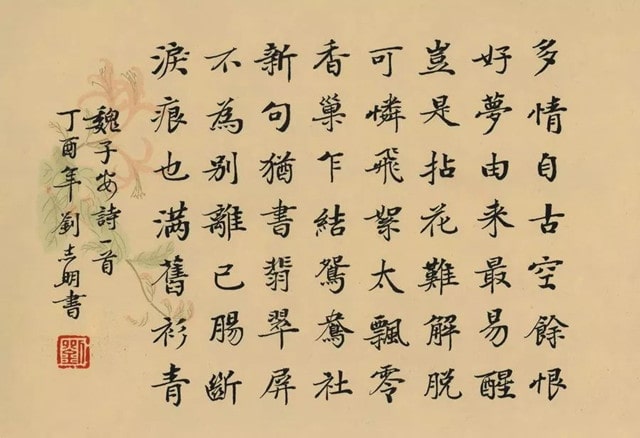 多情自古空餘恨
好夢由來最易醒
豈是拈花難解脫
可憐飛絮太飄零
香巢乍結鴛鴦社
新句猶書翡翠屏
不為別離已腸斷
淚痕也滿舊衫青
魏子安詩一首
丁酉年劉志明書